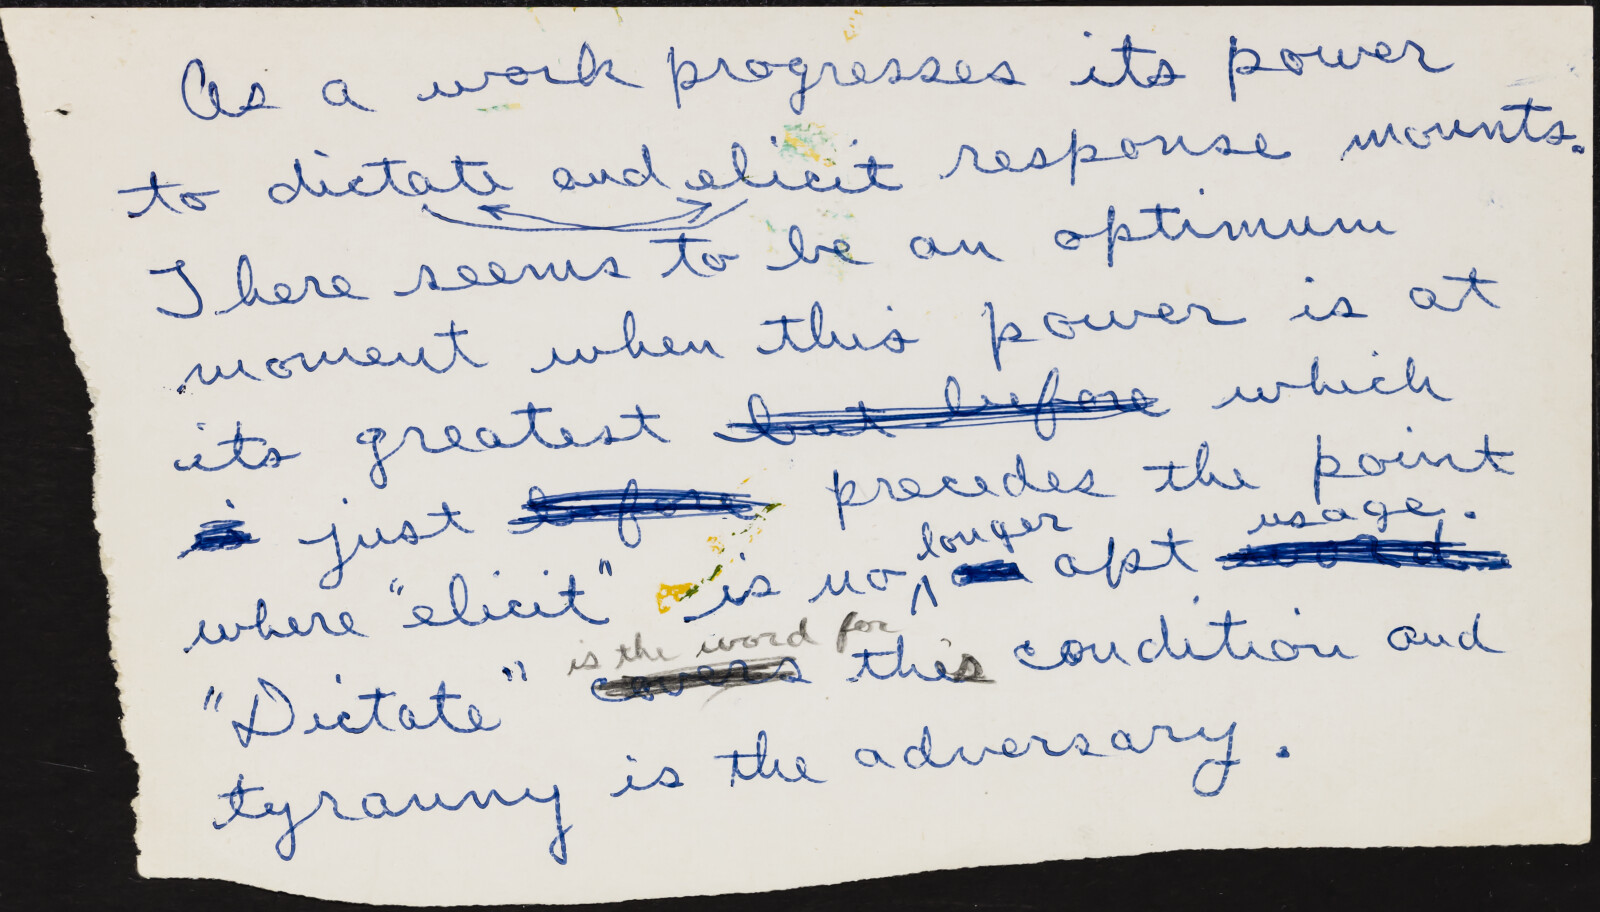 As a work progresses its power
to dictate and elicit response mounts.
There seems to be an optimum
moment when this power is at
its greatest but before which
is just before precedes the point
where "elicit" is no longer apt word usage.
"Dictate" covers is the word for this condition and
tyranny is the adversary.